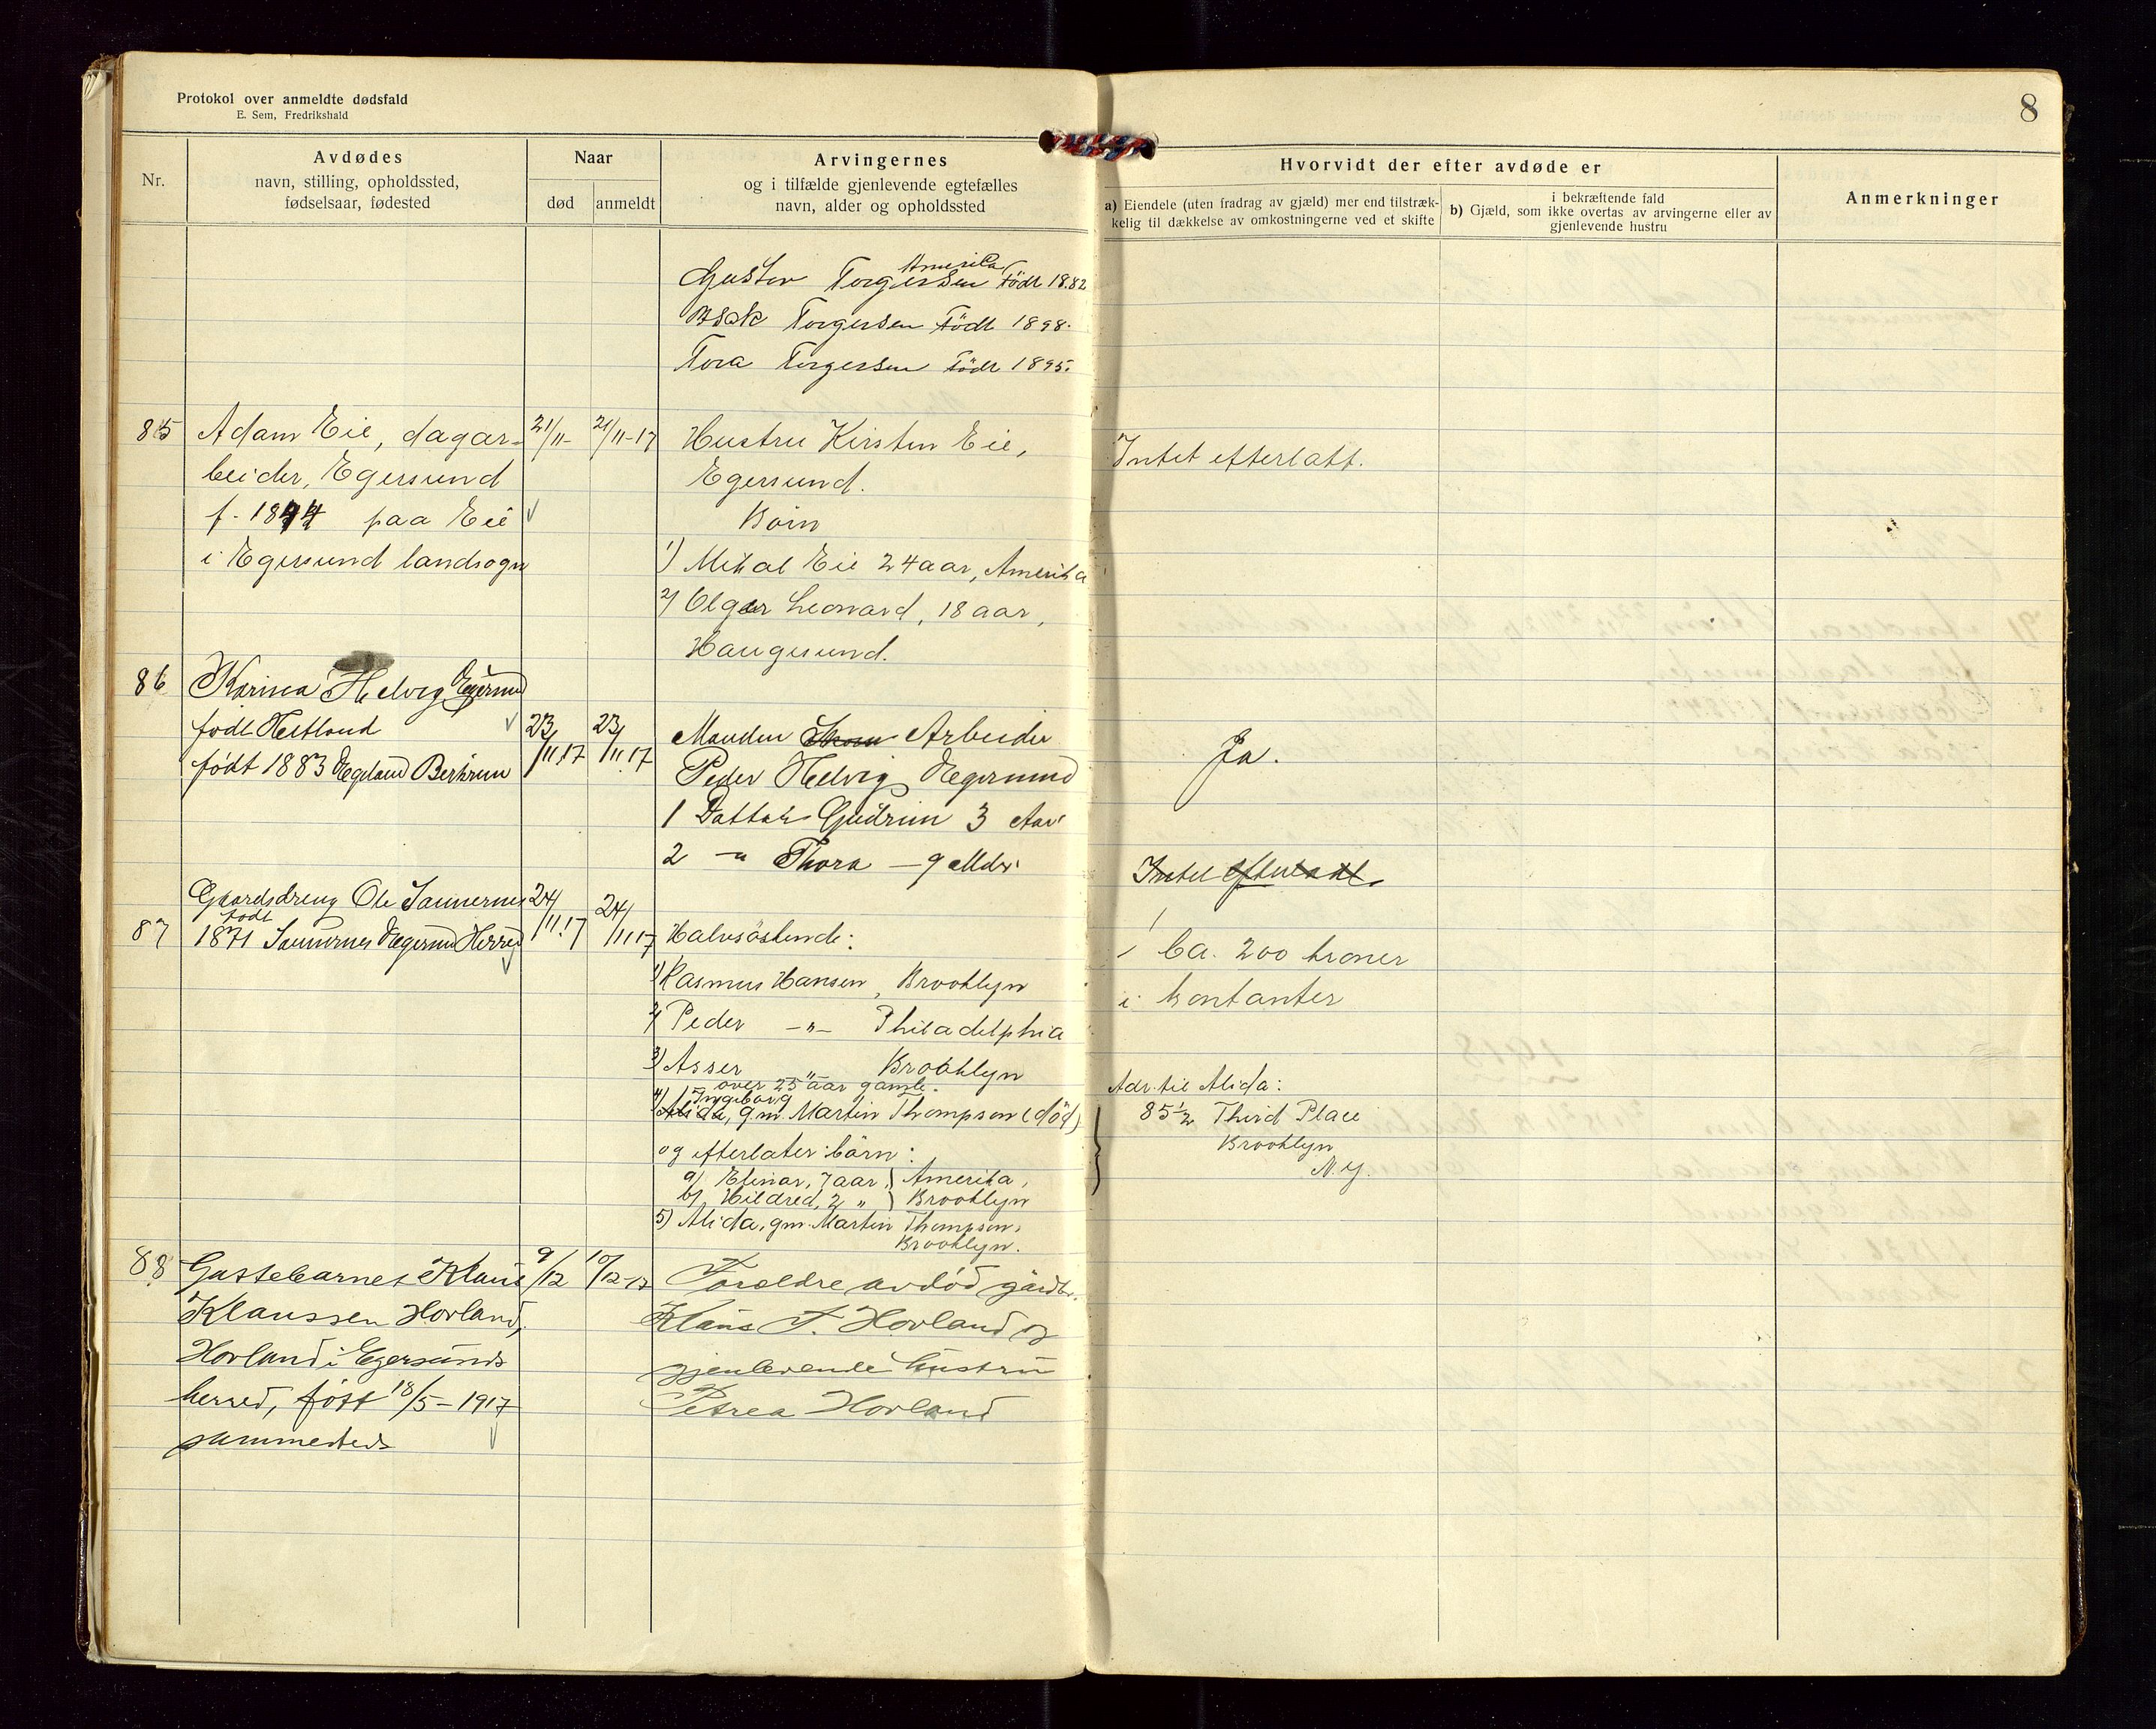 Protokol over anmeldte dødsfald
E. Sem, Fredrikshald
8
Nr.
Avdødes
navn, stilling, opholdssted,
fødselsaar, fødested
Naar
død
anmeldt
Arvingernes
og i tilfælde gjenlevende egtefælles
navn, alder og opholdssted
Hvorvidt der efter avdøde er
a) Eiendele (uten fradrag av gjæld) mer end tilstræk-
kelig til dækkelse av omkostningerne ved et skifte
i bekræftende fald
b) Gjæld, som ikke overtas av arvingerne eller av
gjenlevende hustru
Anmerkninger
Amerika
Gustav Torgersen Född 1882
Isak Torgersen Född 1898.
Tora Torgersen Född 1895.
85 Adam Eie, dagar-
beider, Egersund
f. 1844 paa Eie
i Egersund landsogn
21/11- 21/11-17
Hustru Kirsten Eie,
Egersund.
Börn
1) Mikal Eie 24 aar, Amerika
2) Olger Leonard, 18 aar,
Haugesund.
Intet efterlatt.
86 Karina Helvig Egersund
født Hetland
født 1883 Ægeland Berkrem
23/11.17 23/11.17
Manden Arbeider
Peder Helvig Ægersund
1 Datter Gudrun 3 Aar
2 -"- Thora - 9 Mdr
Ja.
87 Gaardsdreng Ole Saurnes
født
1871 Ægersund Herred
24/11.17 24/11 17
Halvsöskende:
1) Rasmus Hansen, Brooklyn
2) Peder -"- Philadelphia
3) Asser " Brooklyn
over 25 aar gamle.
4) Ingeborg
Alida, gm. Martin Thompson (död)
og efterlater börn:
a) Elinar, 7 aar } Amerika,
b) Hildred, 2 " } Brooklyn
5) Alida, gm. Martin Thompson,
Brooklyn.
Intet efterladt.
Ca. 200 kroner
i kontanter
Adr. til Alida:
85½ Third Place
Brooklyn
N.Y.
88 Klaus
Klaussen Hovland,
Hovland i Egersunds
herred, født 18/5-1917
sammesteds
9/12 10/12-17
Foreldre avdöd gårdbr.
Klaus T. Hovland og
gjenlevende hustru
Petrea Hovland